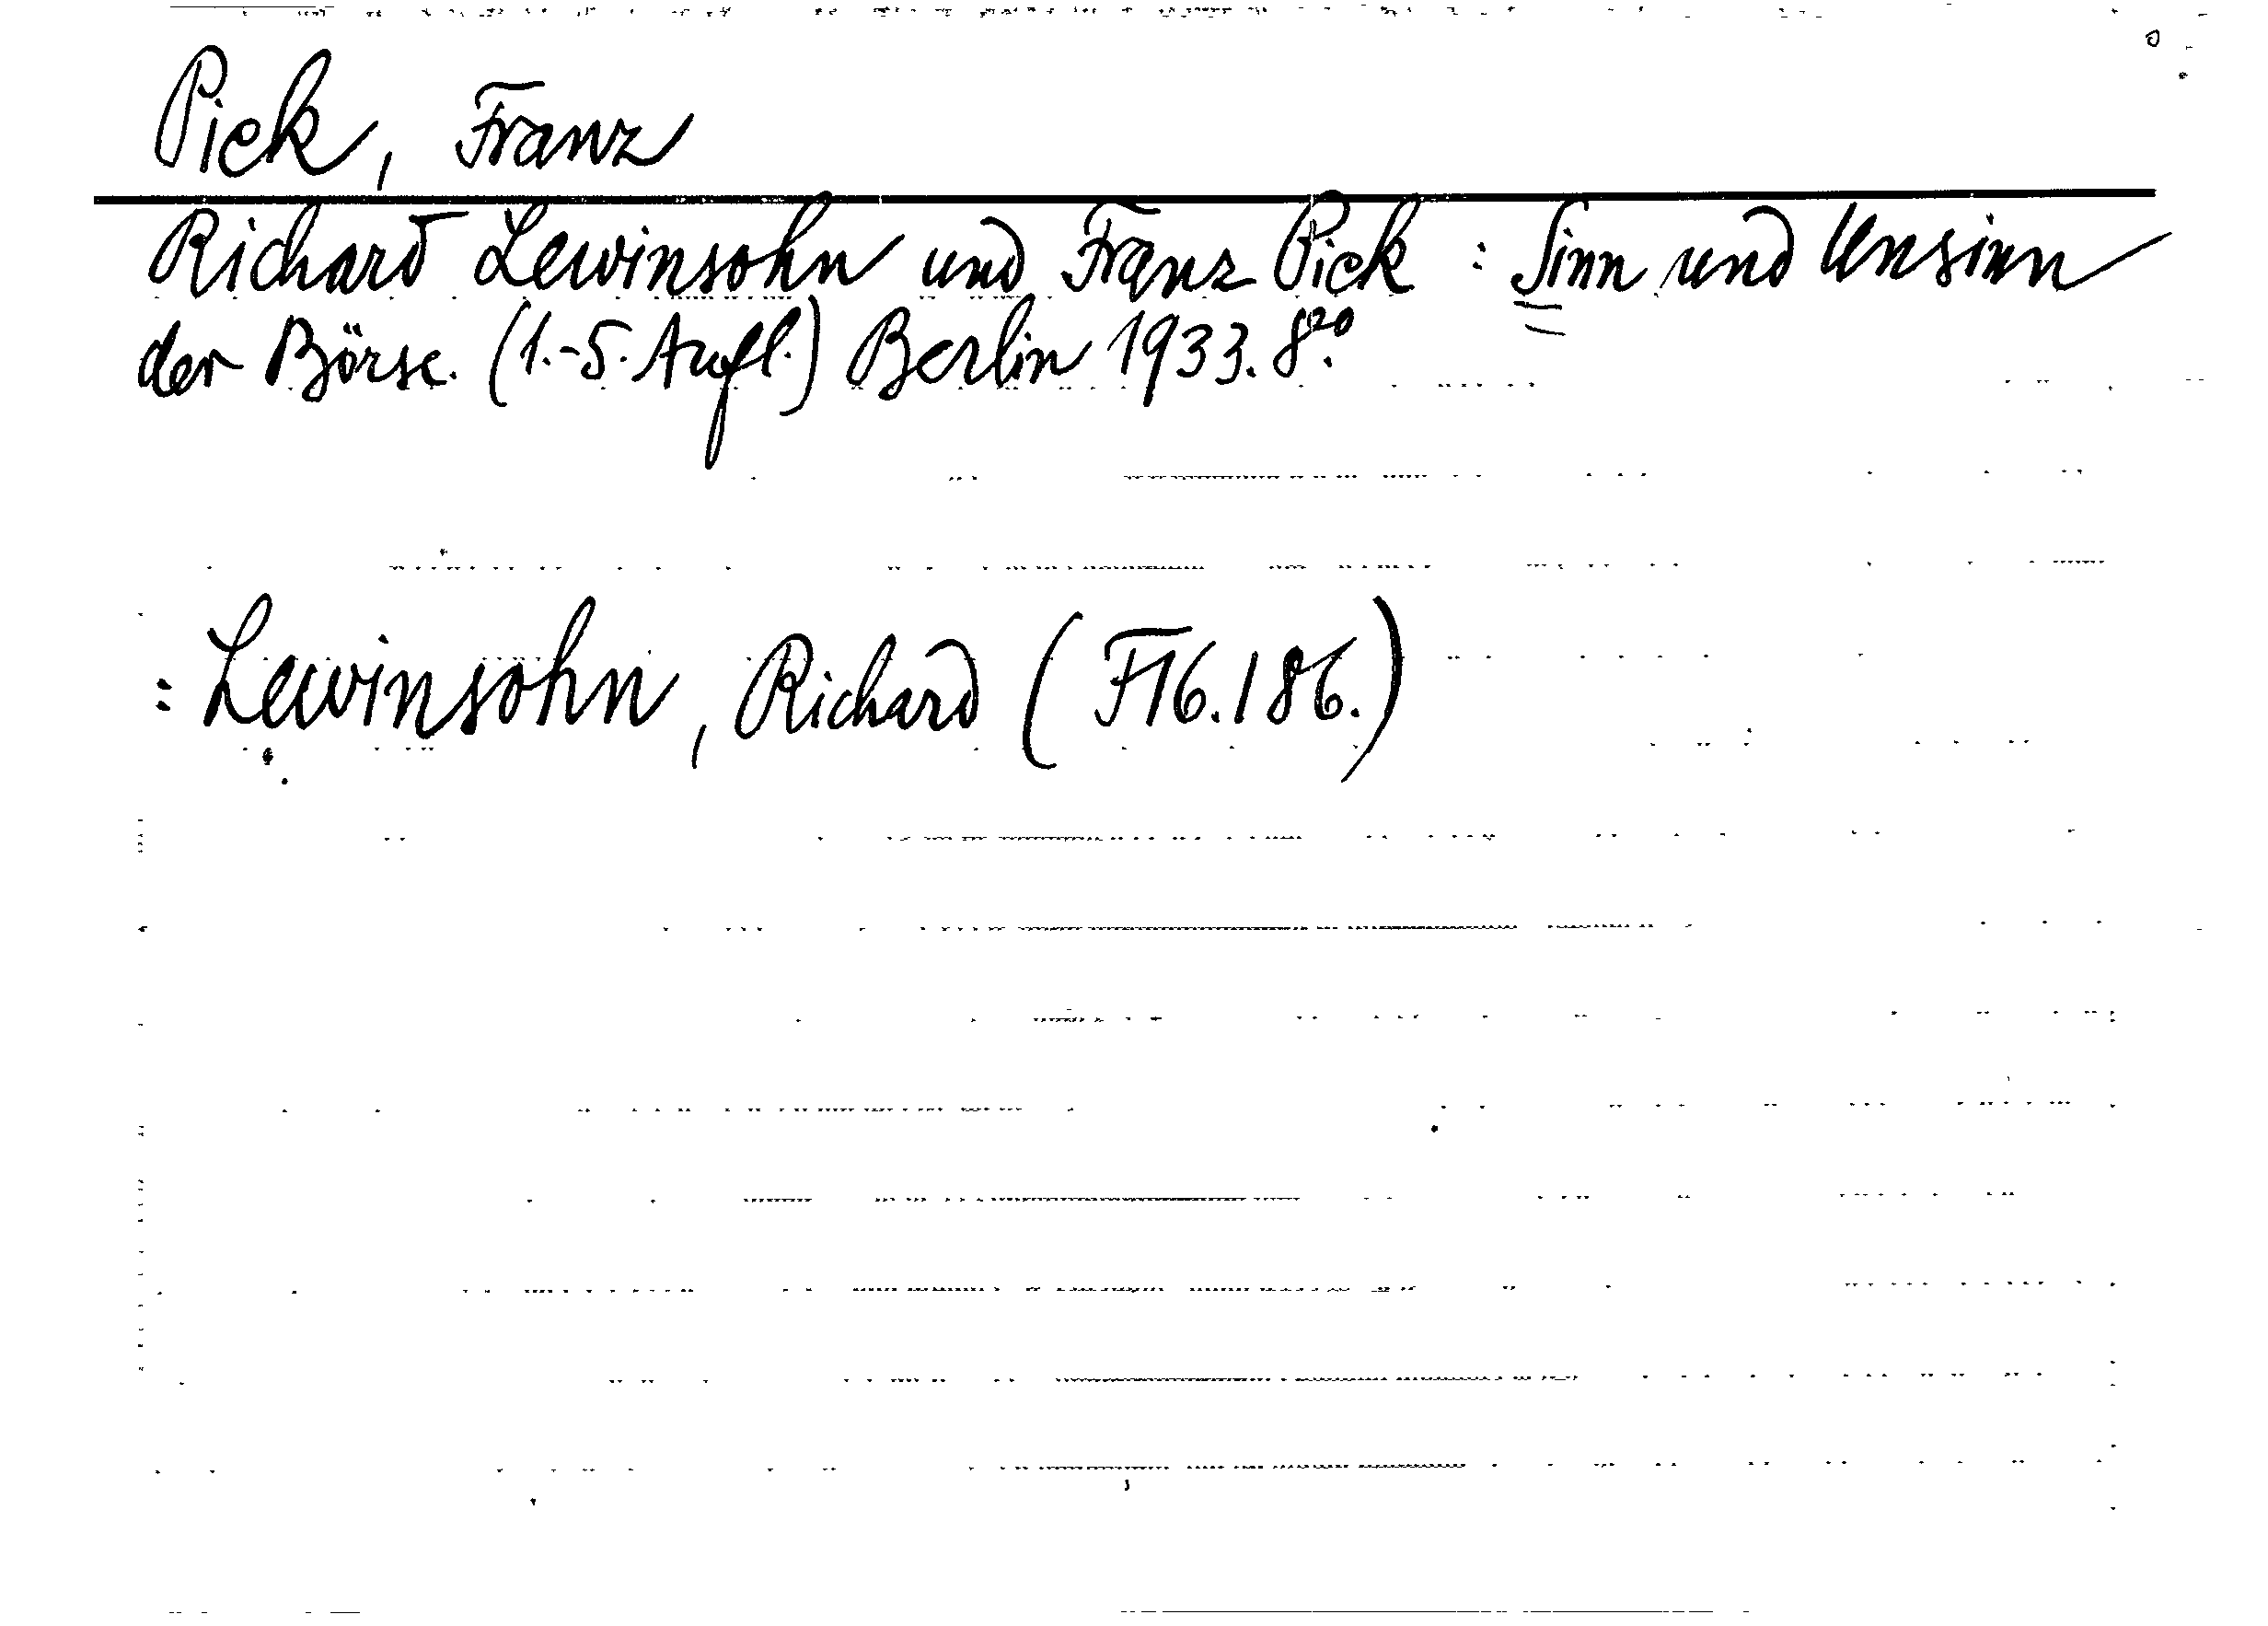 Pick, Franz
Richard Lewinsohn und Franz Pick : Sinn und Unsinn
der Börse. (1.-5. Aufl.) Berlin 1933. 8°.
: Lewinsohn, Richard (F16.186.)